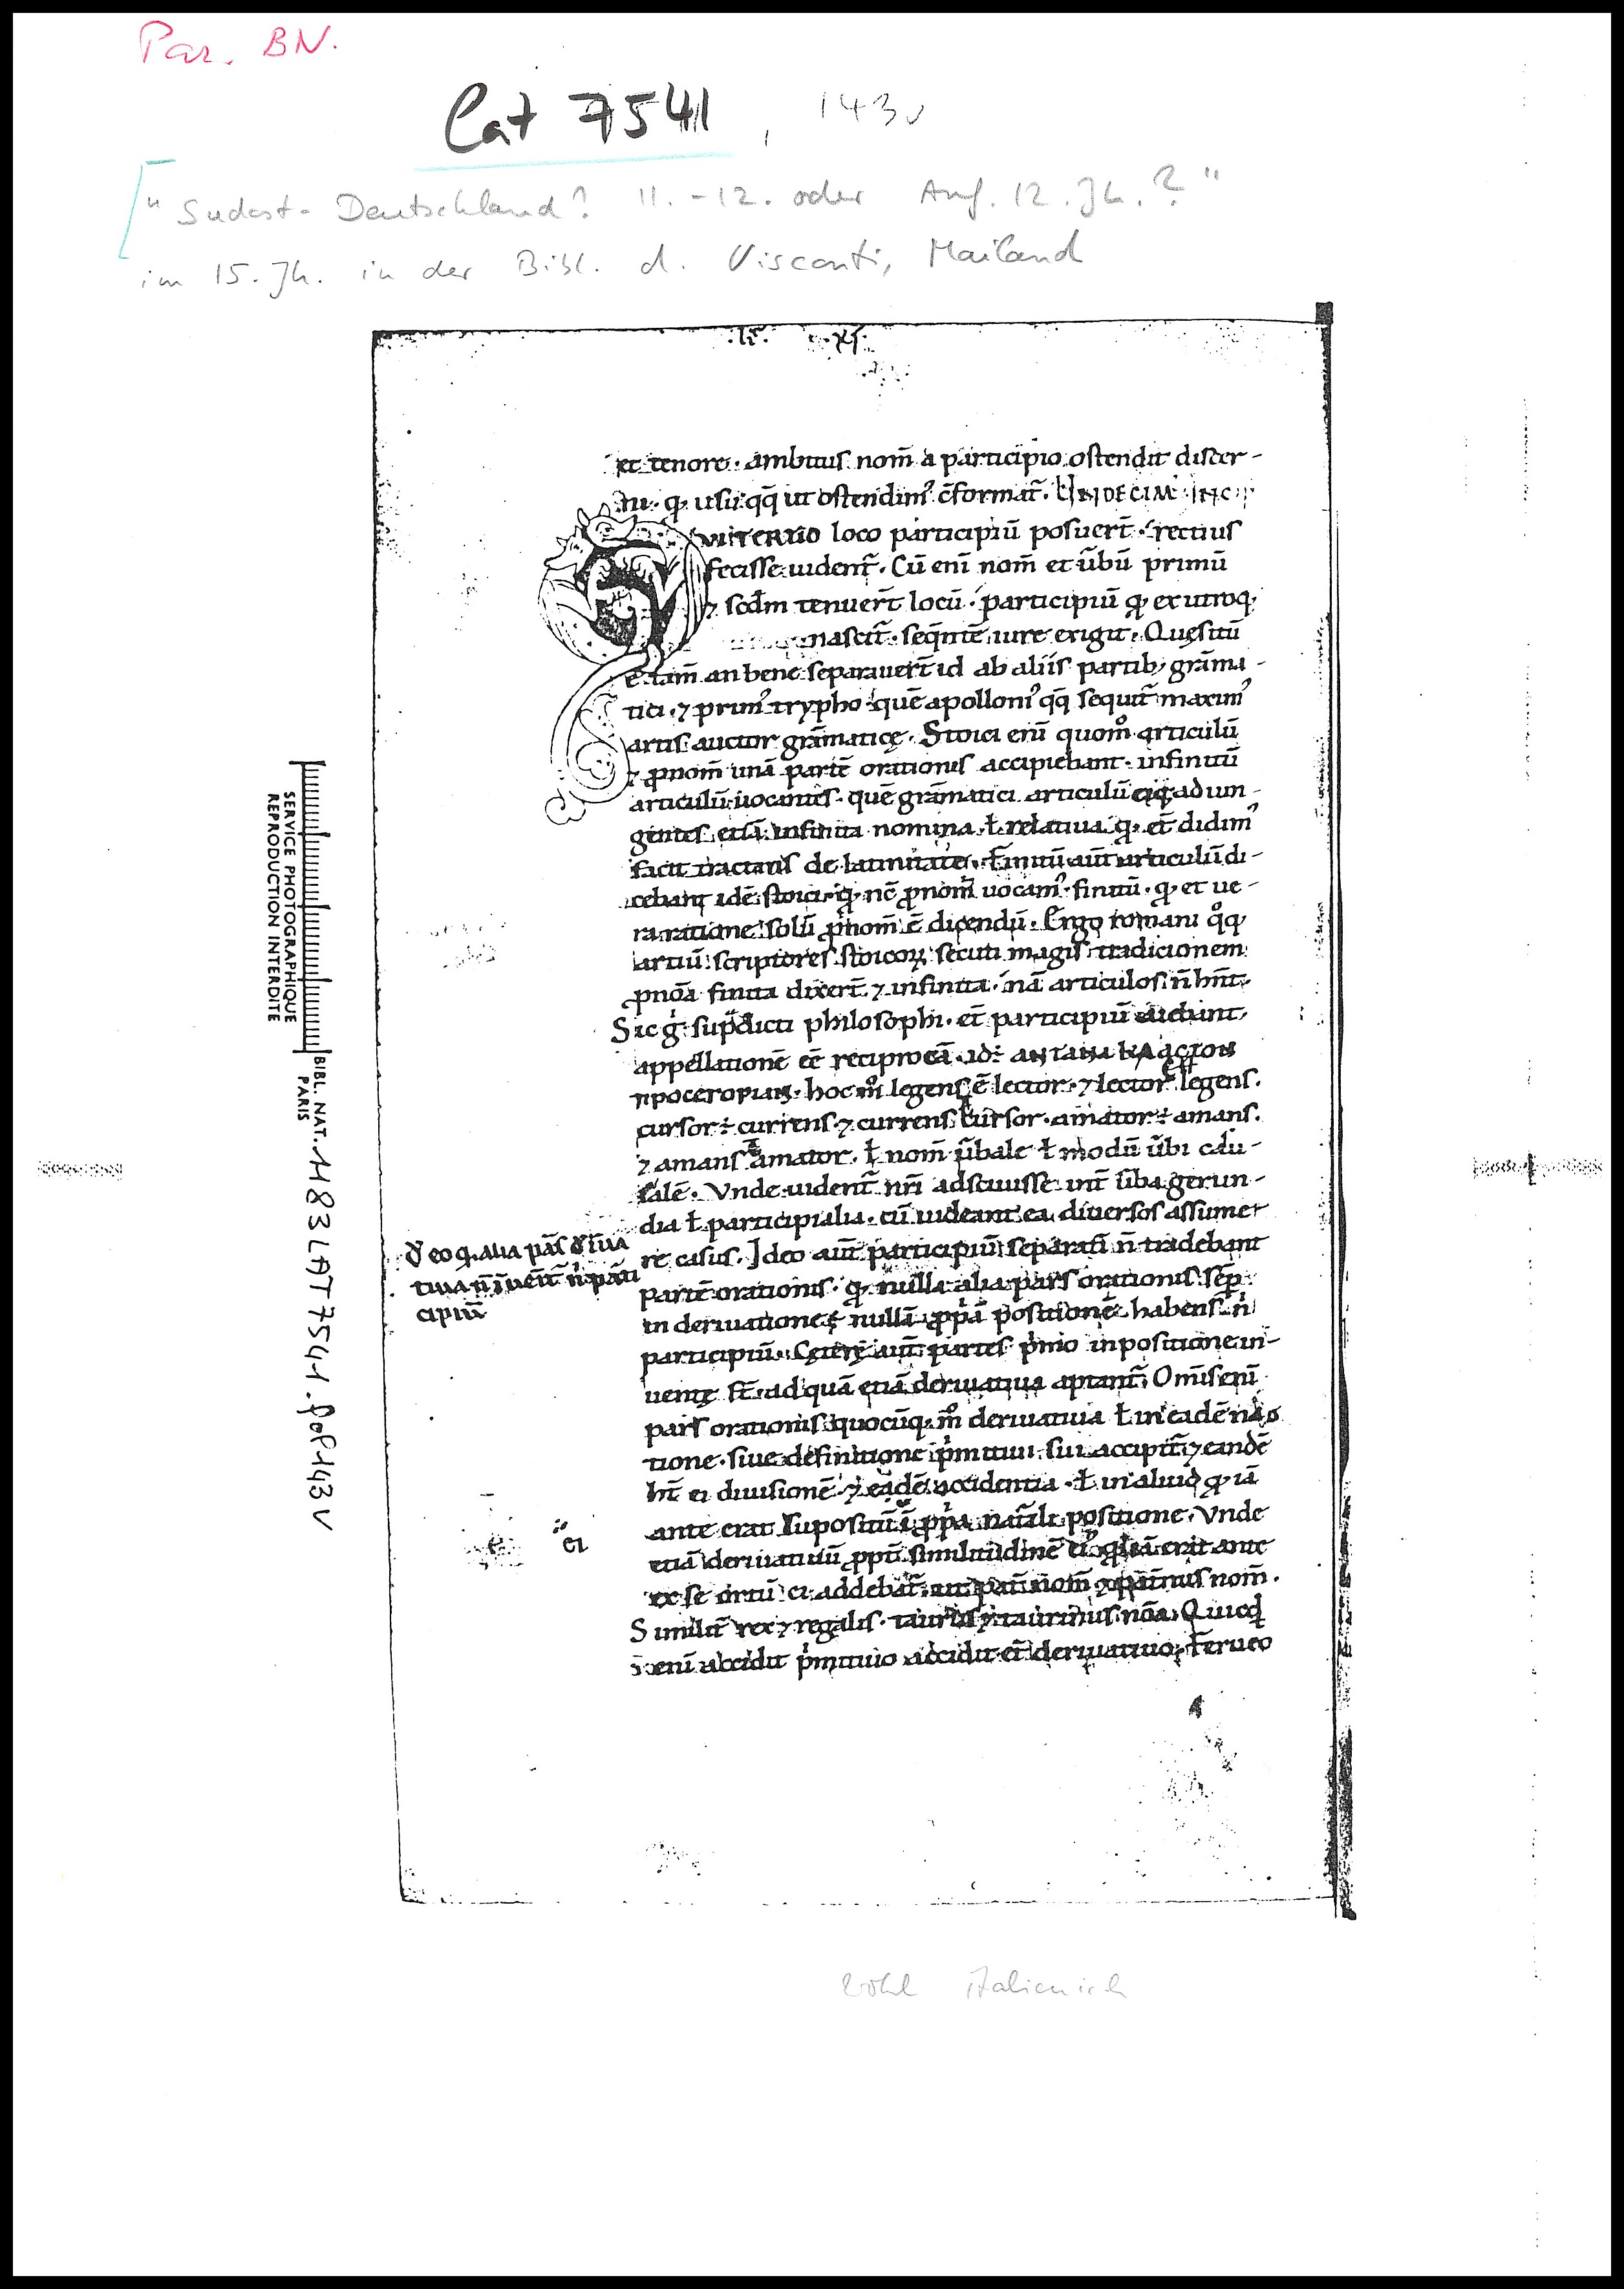 Par. BN.
Lat 7541, 143v
"Südost-Deutschland? 11.-12. oder Anf. 12. Jh.?"
im 15. Jh. in der Bibl. d. Visconti, Mailand
.li. .xi.
et tenore. ambitus nom̄ a participio ostendit discer-
ni. q; usu qq̄ ut ostendim᾽ c̄format̄. UNDECIM INCIP
QVI TERTIO loco participiū posuer̄t. rectius
fecisse uident̄. Cū eni nom̄ et ūbū primū
⁊ scdm̄ tenuer̄t locū. participiū q; ex utroq;
nascit̄. seq̄ntē iure exigit. Quęsitū
ē tam̄ an bene separauer̄t id ab aliis partib; grāma-
tici. ⁊ prim᾽ trypho quē apolloni᾽ qq̄ sequit̄ maxim᾽
artis auctor grāmaticę. Stoici enī quom̊ articulū
⁊ ꝓnom̄ unā partē orationis accipiebant. infinitū
articulū uocantes. quē grāmatici articulū eiq; adiun-
gentes etiā infinita nomina. ł relatiua. q; et̄ didim᾽
facit tractans de latinitate. Finitū aut̄ articulū di-
cebant idē stoici. q; nc̄ ꝓnom̄ uocam᾽ finitū. q; et ue-
ra ratione solū ꝓnom̄ ē dicendū. Ergo romani q̊q;
artiū scriptores stoicoꝝ secuti magis tradicionem
ꝓnōa finita dixer̄t ⁊ infinita. nā articulos n̄ hn̄t.
Sic ḡ supdicti philosophi. et̄ participiū aiebant
appellationē eē reciprocā. id÷ ANTANAKAACTON
hoc m̊ legens ē lector. ⁊ lector legens.
cursor ÷ currens. ⁊ currens cursor. amator ÷ amans.
⁊ amans amator. ł nom̄ ūbale ł modū ūbi cau-
salē. Vnde uident̄ nr̄i adsciuisse int̄ ūba gerun-
dia ł participialia. cū uideant ea diuersos assume-
re casus. Ideo aut̄ participiū separatī n̄ tradebant
partē orationis. q; nulla alia pars orationis sēp
in deriuatione ÷ nullā ꝓp̄ā positionē habens. n̄
participiū. Cęterę aut̄ partes p̄mo in positione in-
uentę st̄. ad quā etiā deriuatiua aptant̄. Om̄is eni
pars orationis quocūq; m̊ deriuatiua ł in eadē nāo
tione. siue definitione p̄mitiui sui accipit̄. ⁊ eandē
ht̄ ei diuisionē. ⁊ eadē accidentia. ł in aliud q; iā
ante erat suposītū ī ꝓp̄a nat̄ali positione. Vnde
etiā deriuatiuū ꝓpt̄ similitudinē ei᾽ q; iā erit ante
ex se ortū ei addebat̄. ut pat̄ nom̄ ⁊ pat̄nus nom̄.
Similit̄ rex ⁊ regalis. taurus ⁊ taurinus nōa. Quicq̄d
eni accidit p̄mitiuo accidit et̄ deriuatiuo. Ferueo
eo q; alia pās
tiua n̄ n̄ pāti
cipiū
ei
SERVICE PHOTOGRAPHIQUE
REPRODUCTION INTERDITE
BIBL. NAT.
PARIS
1183 LAT 7541. fol 143 v
wohl italienisch